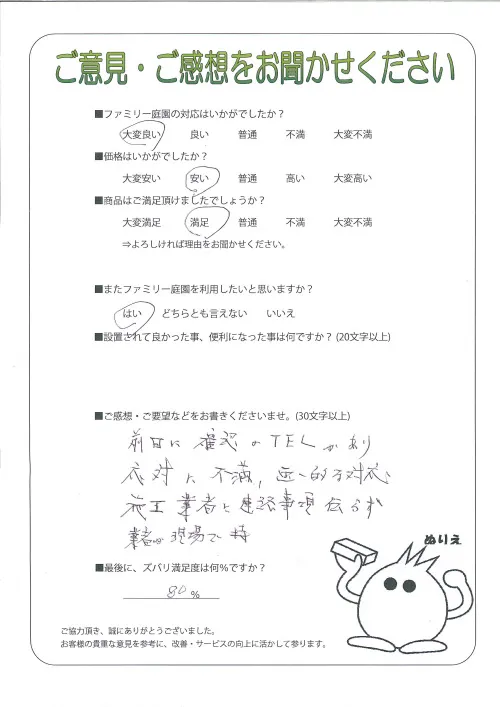 ご意見・ご感想をお聞かせください
■ファミリー庭園の対応はいかがでしたか？
大変良い 良い 普通 不満 大変不満
■価格はいかがでしたか？
大変安い 安い 普通 高い 大変高い
■商品はご満足頂けましたでしょうか？
大変満足 満足 普通 不満 大変不満
⇒よろしければ理由をお聞かせください。
■またファミリー庭園を利用したいと思いますか？
はい どちらとも言えない いいえ
■設置されて良かった事、便利になった事は何ですか？(20文字以上)
■ご感想・ご要望などをお書きくださいませ。(30文字以上)
前日に確認のTELがあり
応対に不満，一的な対応
施工業者と連絡事項伝らず
業者は現場で待
ぬりえ
■最後に、ズバリ満足度は何%ですか？
80 %
ご協力頂き、誠にありがとうございました。
お客様の貴重な意見を参考に、改善・サービスの向上に活かして参ります。